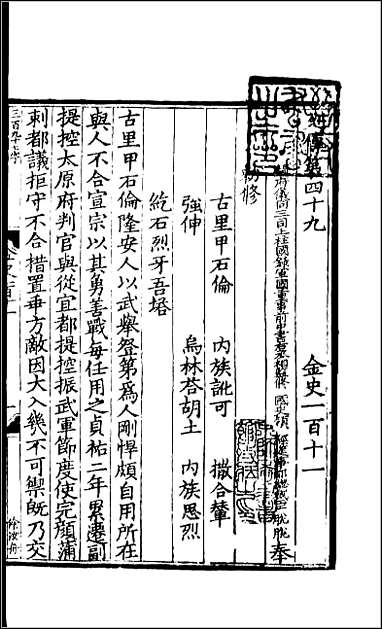 列傳第四十九　金史一百十一
開府儀同三司上柱國錄軍國重事前中書右丞相監修國史領經筵事都總裁臣脫脫奉
勑修
古里甲石倫　內族訛可　撒合輦
強伸　烏林荅胡土　內族思烈
紇石烈牙吾塔
古里甲石倫隆安人以武舉登第為人剛悍頗自用所在
與人不合宣宗以其勇善戰每任用之貞祐二年累遷副
提控太原府判官與從宜都提控振武軍節度使完顏蒲
剌都議拒守不合措置乖方敵因大入幾不可禦既乃交
三百九十七字
金史百十一
一